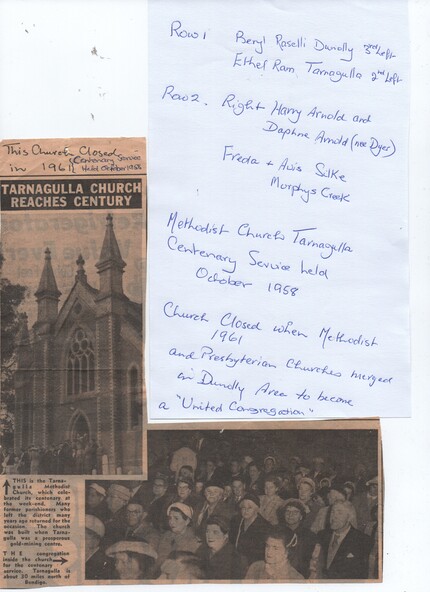 Row 1 Beryl Raselli Dunolly 3rd Left
Ethel Ram Tarnagulla 2nd Left
Row 2. Right Harry Arnold and
Daphne Arnold (nee Dyer)
Freda + Avis Silke
Murphys Creek
Methodist Church Tarnagulla
Centenary Service held
October 1958
Church Closed when Methodist
1961
and Presbyterian Churches merged
in Dunolly Area to become
a "United Congregation"
This Church Closed
in 1961
Centenary Service
Held October 1958
TARNAGULLA CHURCH
REACHES CENTURY
THIS is the Tarna-
gulla Methodist
Church, which cele-
brated its centenary at
the week-end. Many
former parishioners who
left the district many
years ago returned for the
occasion. The church
was built when Tarna-
gulla was a prosperous
gold-mining centre.
THE congregation
inside the church
for the centenary
service. Tarnagulla is
about 30 miles north of
Bendigo.